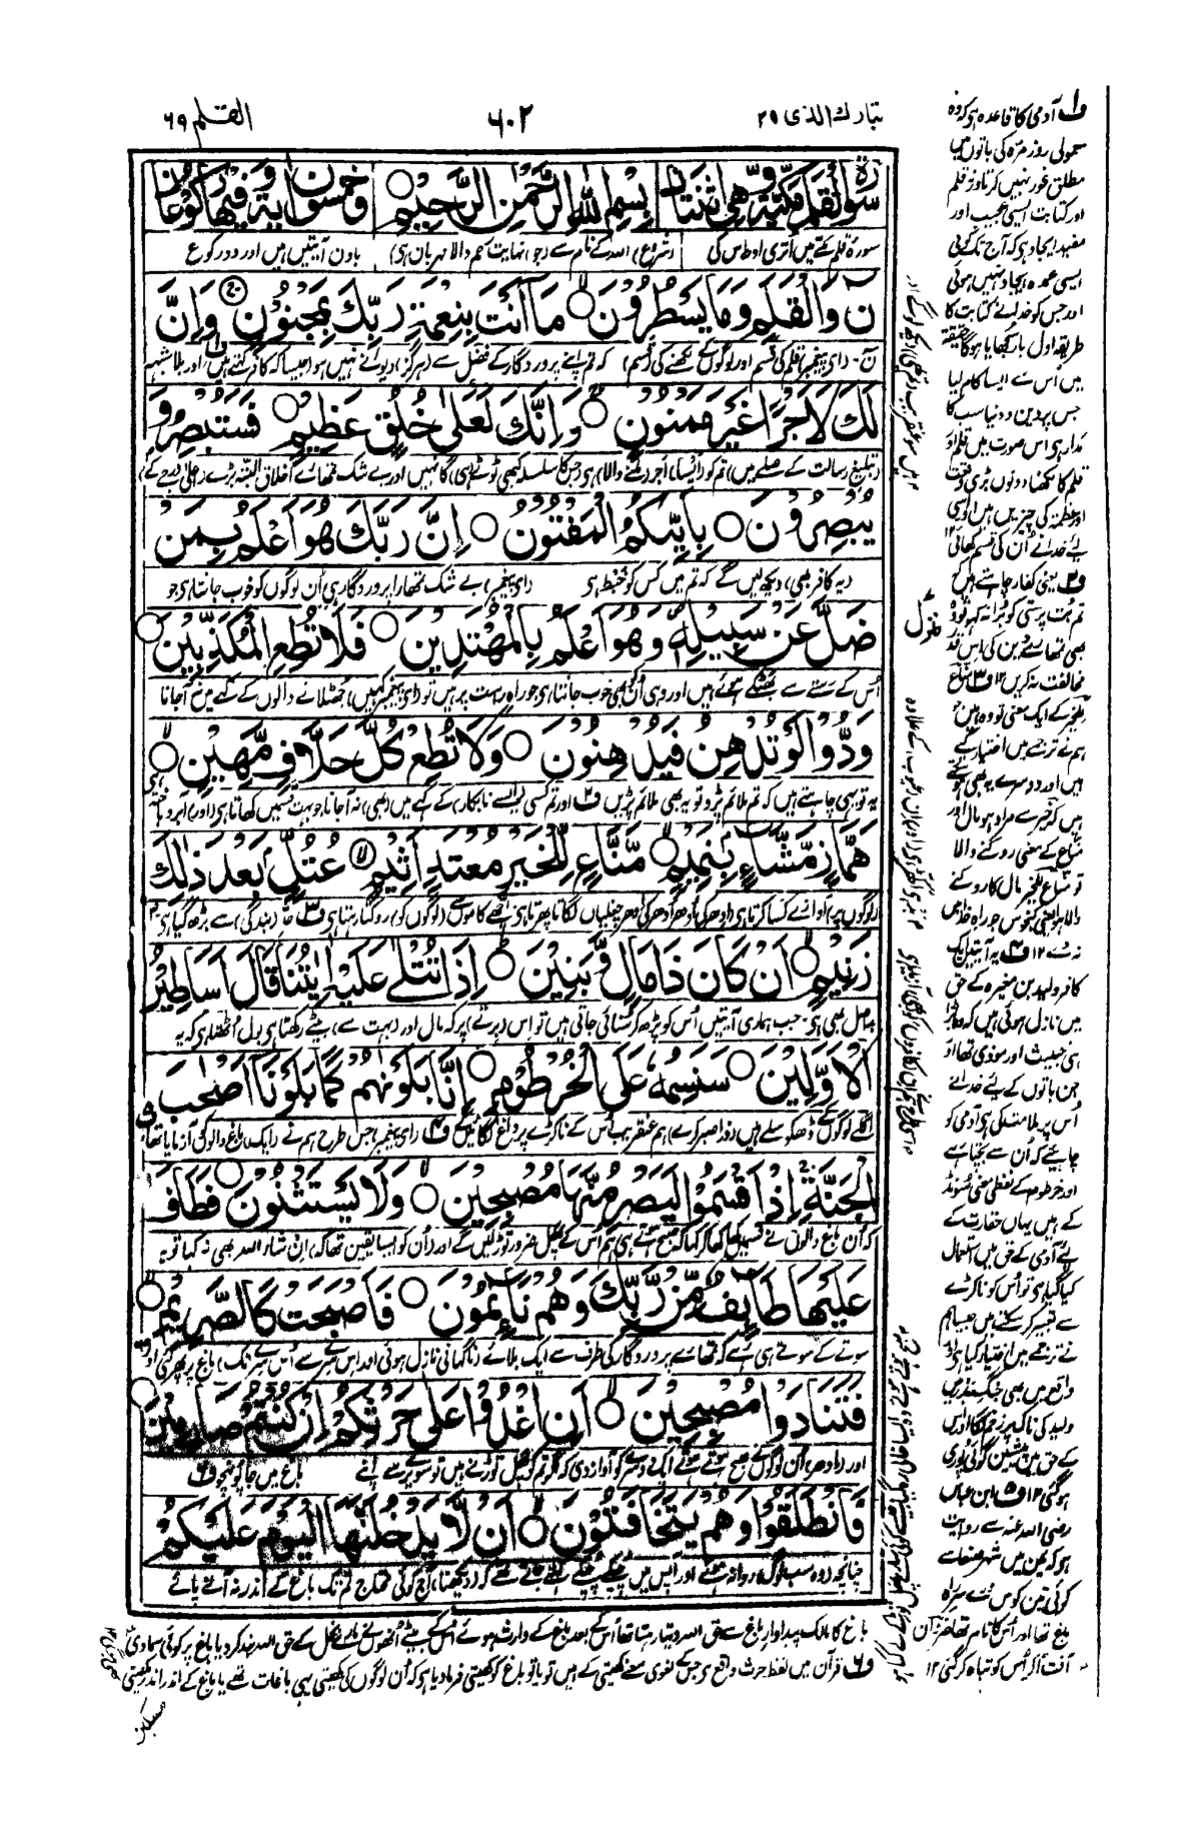 تبارك الذی ۲۹
۶۰۲
القلم ۶۹
سورة القلم مكية وهي اثنتان
بِسْمِ اللهِ الرَّحْمٰنِ الرَّحِيْمِ
وخمسون اية وفيها ركوعان
سورۃ قلم مکے میں اُتری اور اس کی
(شروع) اللہ کے نام سے (جو) نہایت رحم والا مہربان (ہی)
باون آیتیں ہیں اور دو رکوع
نٓ وَالْقَلَمِ وَمَا يَسْطُرُوْنَ ○ مَآ اَنْتَ بِنِعْمَةِ رَبِّكَ بِمَجْنُوْنٍ ○ وَاِنَّ
نٓ۔ (ای پیغمبر) قلم کی قسم اور لوگوں کے لکھنے کی قسم) کہ تم اپنے پروردگار کے فضل سے (ہرگز) دیوانے نہیں ہو (جیسا کہ کافر کہتے ہیں) اور بلا شبہہ
لَكَ لَاَجْرًا غَيْرَ مَمْنُوْنٍ ○ وَاِنَّكَ لَعَلٰى خُلُقٍ عَظِيْمٍ ○ فَسَتُبْصِرُ وَ
(تبلیغ رسالت کے صلے میں) تم کو (ایسا) اجر ملنے والا (ہی) جس کا سلسلہ کبھی ٹوٹے (ہی) گا نہیں اور بے شک تمھارے اخلاق البتہ بڑے (اعلیٰ درجے کے)
يُبْصِرُوْنَ ○ بِاَيِّىكُمُ الْمَفْتُوْنُ ○ اِنَّ رَبَّكَ هُوَ اَعْلَمُ بِمَنْ
(یہ کافر بھی) دیکھ لیں گے کہ تم میں کس کو خبط ہی (ای پیغمبر) بے شک تمھارا پروردگار ہی اُن لوگوں کو خوب جانتا ہی جو
ضَلَّ عَنْ سَبِيْلِهٖ وَهُوَ اَعْلَمُ بِالْمُهْتَدِيْنَ ○ فَلَا تُطِعِ الْمُكَذِّبِيْنَ ○
اُس کے رستے سے بھٹکے ہوئے ہیں اور وہی اُن کو بھی خوب جانتا ہی جو راہ راست پر ہیں تو (ای پیغمبر کہیں) جھٹلانے والوں کے کہے میں نہ آجانا
وَدُّوْا لَوْ تُدْهِنُ فَيُدْهِنُوْنَ ○ وَلَا تُطِعْ كُلَّ حَلَّافٍ مَّهِيْنٍ ○
یہ تو یہی چاہتے ہیں کہ تم ملائم پڑو تو یہ بھی ملائم پڑیں ف۲ اور تم کسی ایسے نابکار) کے کہے میں (بھی) نہ آجانا جو بہت قسمیں کھاتا ہی (اور) آبرو باختہ
هَمَّازٍ مَّشَّآءٍۭ بِنَمِيْمٍ ○ مَّنَّاعٍ لِّلْخَيْرِ مُعْتَدٍ اَثِيْمٍ ○ عُتُلٍّۭ بَعْدَ ذٰلِكَ
(لوگوں پر) آوازے کسا کرتا ہی (ادھر کی اُدھر اُدھر کی ادھر) چغلیاں لگاتا پھرتا ہی اچھے کاموں سے (لوگوں کو) روکتا رہتا ہی ف۳ حدِّ (بندگی) سے بڑھ گیا ہی
زَنِيْمٍ ○ اَنْ كَانَ ذَا مَالٍ وَّبَنِيْنَ ○ اِذَا تُتْلٰى عَلَيْهِ اٰيٰتُنَا قَالَ اَسَاطِيْرُ
بداصل بھی ہی۔ جب ہماری آیتیں اُس کو پڑھ کر سنائی جاتی ہیں تو اس (برتے) پر کہ مال اور (بہت سے) بیٹے رکھتا ہی بول اُٹھتا ہی کہ یہ
الْاَوَّلِيْنَ ○ سَنَسِمُهٗ عَلَى الْخُرْطُوْمِ ○ اِنَّا بَلَوْنٰهُمْ كَمَا بَلَوْنَآ اَصْحٰبَ
اگلے لوگوں کے ڈھکوسلے ہیں (ذرا صبر کرے) ہم عنقریب اُس کے ناکڑے پر داغ لگائیں گے ف۴ (ای پیغمبر) جس طرح ہم نے (ایک) باغ والوں کی آزمایا تھا
الْجَنَّةِ اِذْ اَقْسَمُوْا لَيَصْرِمُنَّهَا مُصْبِحِيْنَ ○ وَلَا يَسْتَثْنُوْنَ ○ فَطَافَ
کہ اُن باغ والوں نے قسمیں کھا کھا کر کہا کہ صبح ہوتے ہی ہم اُس کے پھل ضرور توڑیں گے اور (اُن کو ایسا یقین تھا کہ) اِن شاء اللہ بھی نہ کہا تو یہ
عَلَيْهَا طَآئِفٌ مِّنْ رَّبِّكَ وَهُمْ نَآئِمُوْنَ ○ فَاَصْبَحَتْ كَالصَّرِيْمِ ○
سوتے کے سوتے ہی رہے کہ تمھارے پروردگار کی طرف سے ایک بلائے (ناگہانی نازل ہوئی اور اِس سرے سے اُس سرے تک) باغ پر پھر گئی
فَتَنَادَوْا مُصْبِحِيْنَ ○ اَنِ اغْدُوْا عَلٰى حَرْثِكُمْ اِنْ كُنْتُمْ صَارِمِيْنَ ○
اور (ادھر) اُن لوگوں نے صبح ہوتے ہوتے ایک دوسرے کو آواز دی کہ اگر تم کو پھل توڑنے ہیں تو سویرے سے اپنے باغ میں جا پہنچو ف۶
فَانْطَلَقُوْا وَهُمْ يَتَخَافَتُوْنَ ○ اَنْ لَّا يَدْخُلَنَّهَا الْيَوْمَ عَلَيْكُمْ
چنانچہ (وہ سب) لوگ روانہ ہوئے اور آپس میں چپکے چپکے کہتے جاتے تھے کہ (دیکھنا) آج کوئی محتاج تم تک باغ کے اندر نہ آنے پائے
ف۱ آدمی کا قاعدہ ہی کہ وہ
معمولی روز مرّہ کی باتوں میں
مطلق غور نہیں کرتا ورنہ قلم
اور کتابت ایسی عجیب اور
مفید ایجاد ہی کہ آج تک کوئی
ایسی عمدہ ایجاد نہیں ہوئی
اور جس کو خدا نے کتابت کا
طریقہ اول بار سکھایا ہوگا حقیقۃً
میں اُس نے ایسا کام لیا
جس پر دین و دنیا سب کا
مدار ہی اس صورت میں قلم اور
قلم کا لکھنا دونوں بڑی وقعت
اور عظمت کی چیزیں ہیں اور اسی
لئے خدا نے اُن کی قسم کھائی ۱۲
ف۲ یعنی کفار چاہتے ہیں کہ
تم بُت پرستی کو بُرا نہ کہو تو وہ
بھی تمھارے دین کی اس قدر
مخالفت نہ کریں ۱۲ ف۳ منّاع
للخیر کے ایک معنی تو وہ ہیں جو
ہم نے ترجمے میں اختیار کئے
ہیں اور دوسرے یہ بھی ہو سکتے
ہیں کہ خیر سے مراد ہو مال اور
منّاع کے معنی روکنے والا
تو منّاع للخیر مال کا روکنے
والا ہوا یعنی کنجوس جو راہ خدا میں
نہ دے ۱۲ ف۴ یہ آیتیں ایک
کافر ولید بن مغیرہ کے حق
میں نازل ہوئی ہیں کہ وہ بڑا
ہی خبیث اور موذی تھا اور
جن باتوں کے لئے خدا نے
اُس پر ملامت کی ہی آدمی کو
چاہئے کہ اُن سے بچتا رہے
اور خرطوم کے لفظی معنی سونڈ
کے ہیں یہاں حقارت کے
لئے آدمی کے حق میں استعمال
کیا گیا ہی تو اُس کو ناکڑے
سے تعبیر کر سکتے ہیں جیسا ہم
نے ترجمے میں اختیار کیا ہی اور
واقع میں بھی جنگِ بدر میں
ولید کی ناک پر زخم لگا اور اس
کے حق میں پیشین گوئی پوری
ہوگئی ۱۲ ف۵ ابن عباس
رضی اللہ عنہ سے روایت
ہو کہ یمن میں شہر صنعاء سے
کوئی تین کوس سرِ راہ
باغ تھا اور اُس کا نام
منزل
باغ کا مالک پیداوار باغ سے حق اللہ دیتا رہتا تھا اُس کے بعد باغ کے وارث ہوئے اُس کے بیٹے اُنھوں نے مارے بخل کے حق اللہ بند کر دیا باغ پر کوئی سماوی
آفت آکر اُس کو تباہ کر گئی ۱۲
ف۶ قرآن میں لفظ حرث واقع ہی جس کے لغوی معنے کھیتی کے ہیں تو یا تو باغ کو کھیتی فرما دیا ہی کہ اُن لوگوں کی کھیتی یہی باغات تھے یا باغ کے اندر اندر کھیتی
مسکین